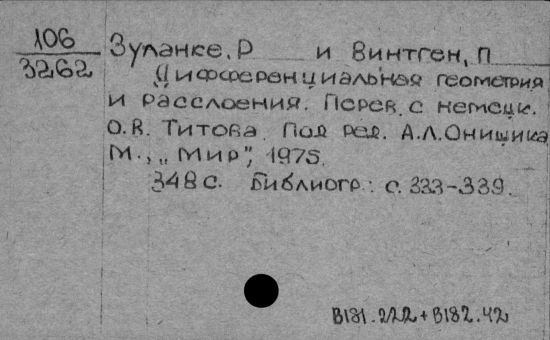 106
3262
Зуланке, Р и Винтген, П
Дифференциальная геометрия
и расслоения. Перев. с немецк.
О.В. Титова. Под ред. А.Л. Онищика
М., „Мир", 1975.
348 с. Библиогр.: с. 333-339.
В181.222+В182.42